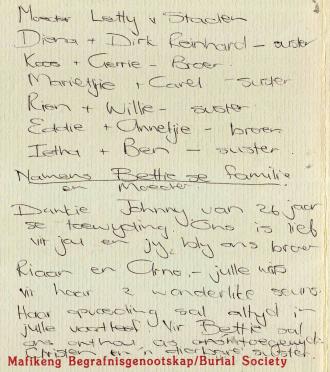 Moeder Letty v Staden
Diena + Dirk Reinhard - suster
Koos + Gerrie - Broer
Marietjie + Carel - suster
Rien + Willie - suster
Eddie + Annetjie - broer
Ietha + Ben - suster
Namens Bettie se familie
en Moeder
Dankie Johnny van 26 jaar
se toewyding. Ons is lief
vir jou en jy bly ons broer
Riaan en Arno, - julle was
vir haar 2 wonderlike seuns.
Haar opvoeding sal altyd in
julle voortleef. Vir Bettie sal
ons onthou as
Christen en 'n dierbare suster.
Mafikeng Begrafnisgenootskap/Burial Society